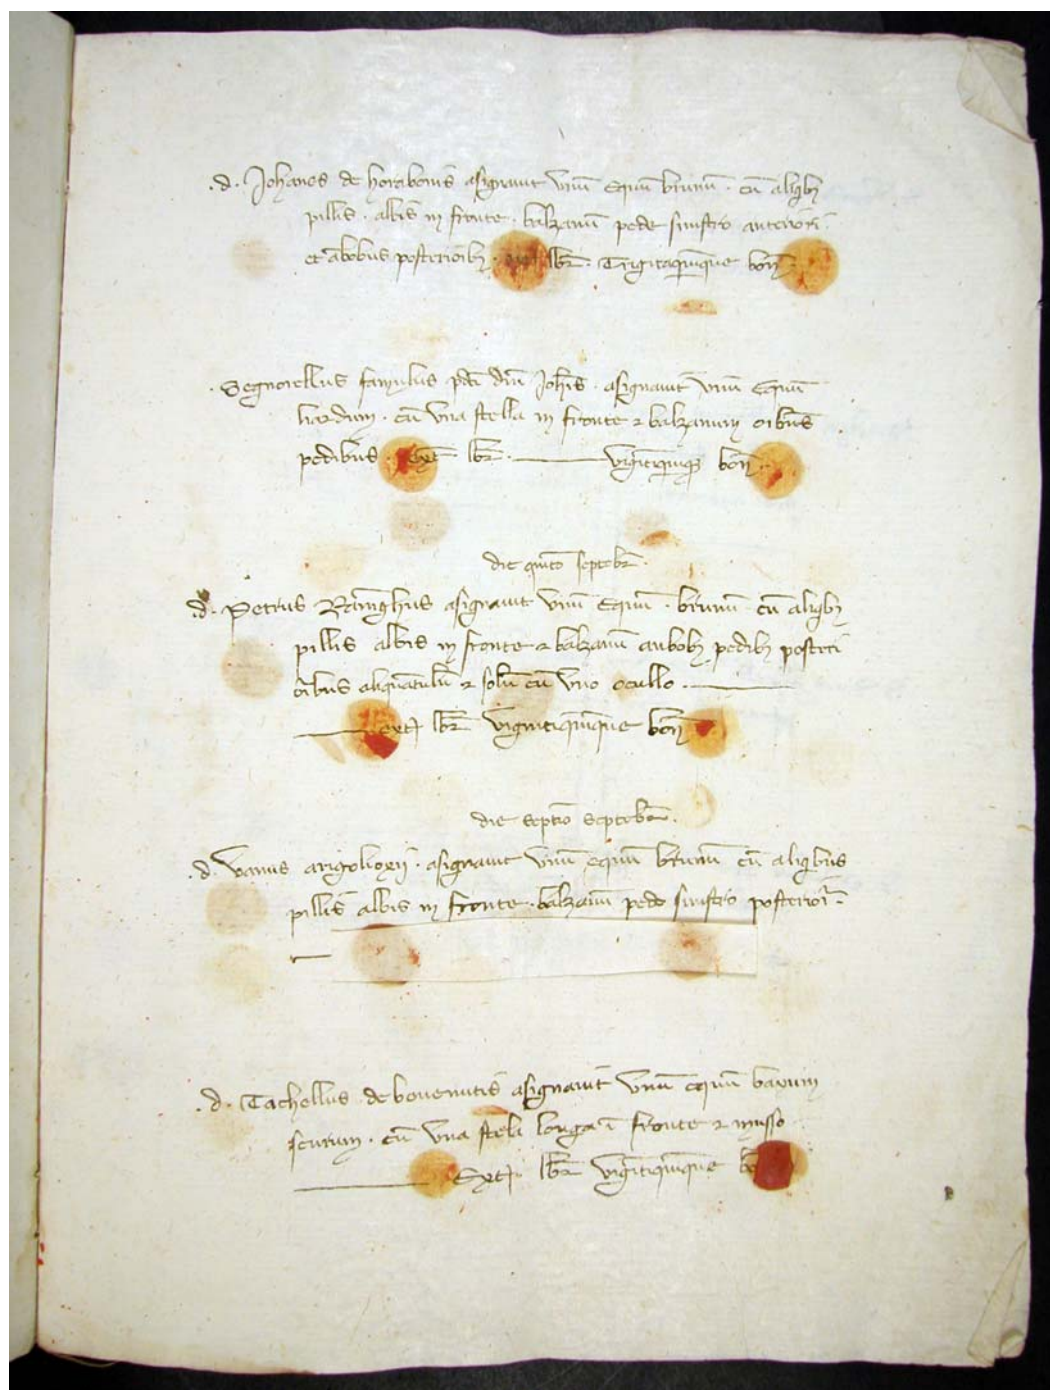 .d. Johanes de horabonis asignavit unũ equũ brunũ . cũ aliqbȝ
pillis . albis in fronte . balzanũ pede sinistro anteriori .
et abobus posterioibȝ . lbr̃ . Trigitaquinque boñ
. Segnorellus famulus pdc̃i dñi Joh̃is . asignavit unũ equũ
liardum . cũ una stella in fronte ⁊ balzanum oibus
pedibus . ext̃ lbr̃ . vigitiquinqȝ boñ .
die quĩto septẽbr̃ .
.d. Petrus Ramghus asignavit unũ equũ . brunũ . cũ aliqbȝ
pillis albis in fronte ⁊ balzanũ anbobȝ pedibȝ posteri
oribus aliquãtulũ ⁊ solũ cũ uno ocullo .
ext̃ lbr̃ vigintiquinque boñ
die septio septebr̃ .
.d. vanus asignavit unũ equũ brunũ cũ aliqibus
pillis albis in fronte . balzanũ pede sinistro posteriori .
.d. Tachellus de bonenutis asignavit unũ equũ baxum
scurum . cũ una stela longa ĩ fronte ⁊ musso
Ext̃ lbr̃ vigĩtiquinque